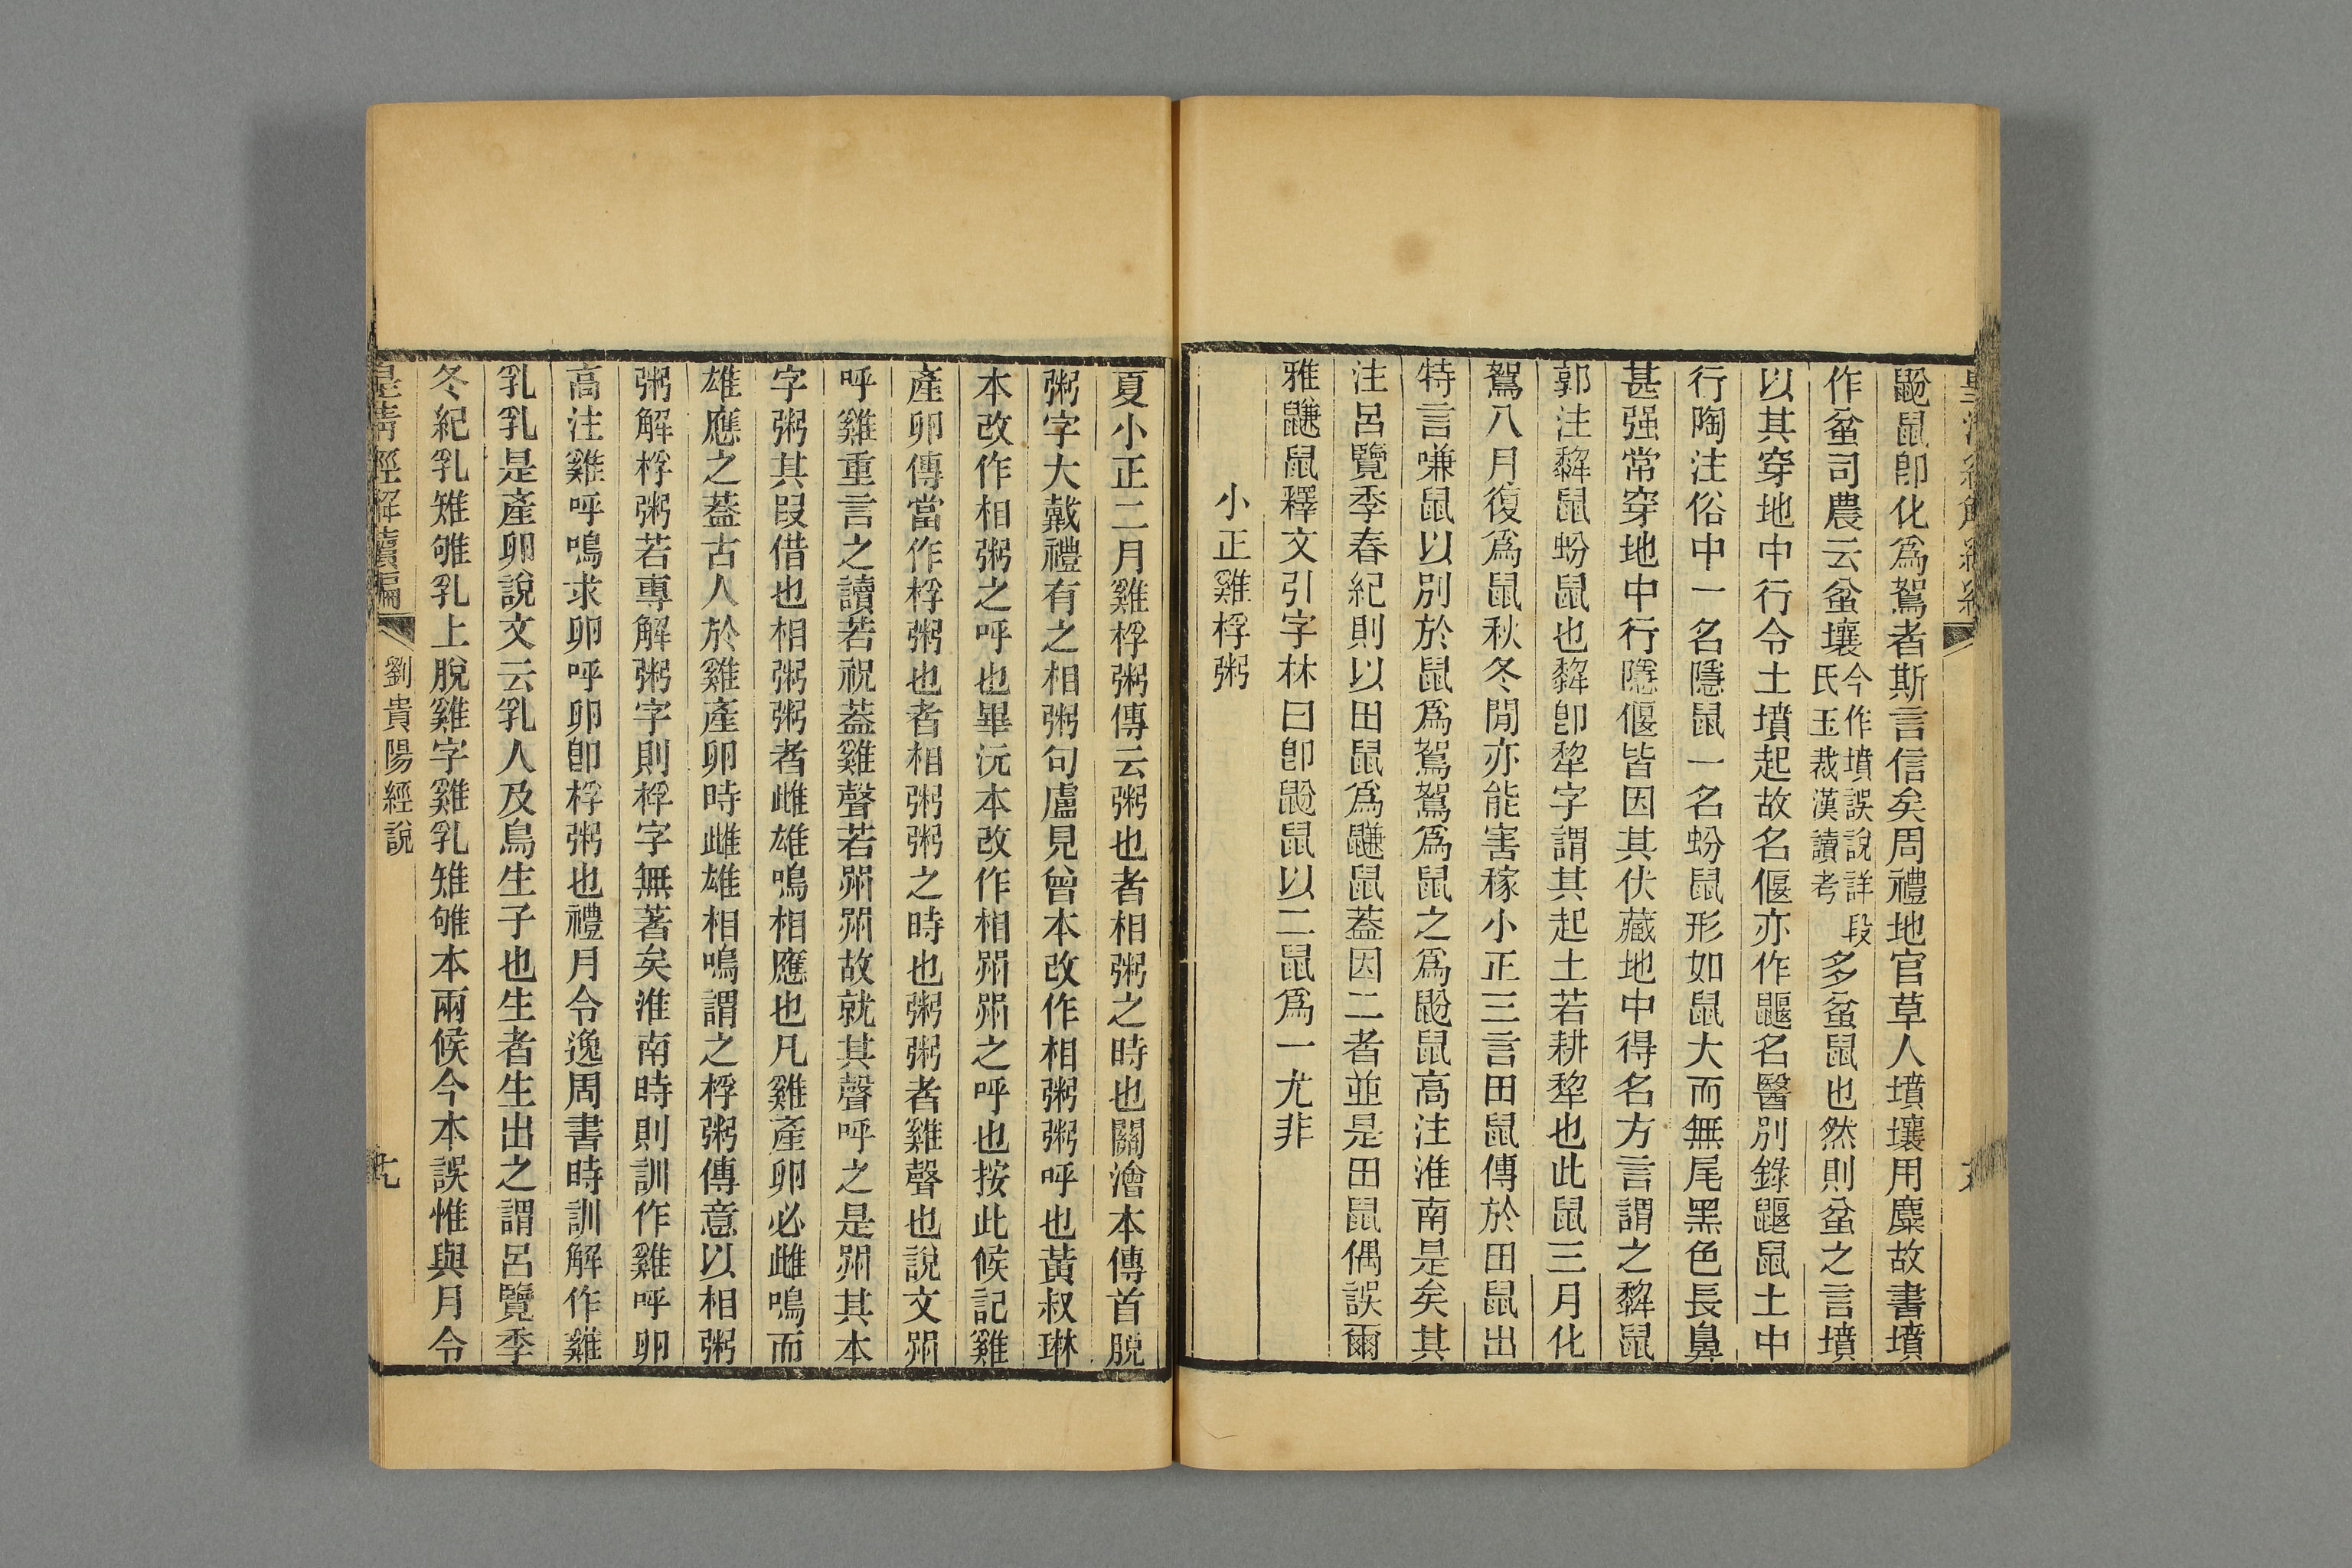 鼢鼠卽化爲鴽者斯言信矣周禮地官草人墳壤用麋故書墳
作蚠司農云蚠壤今作墳誤說詳段氏玉裁漢讀考多蚠鼠也然則蚠之言墳
以其穿地中行令土墳起故名偃亦作鼴名醫別錄鼴鼠土中
行陶注俗中一名隱鼠一名蚡鼠形如鼠大而無尾黑色長鼻
甚强常穿地中行隱偃皆因其伏藏地中得名方言謂之鼠
郭注鼠蚡鼠也卽犂字謂其起土若耕犂也此鼠三月化
鴽八月復爲鼠秋冬閒亦能害稼小正三言田鼠傳於田鼠出
特言嗛鼠以別於鼠爲鴽鴽爲鼠之爲鼢鼠高注淮南是矣其
注呂覽季春紀則以田鼠爲鼸鼠葢因二者並是田鼠偶誤爾
雅鼸鼠釋文引字林曰卽鼢鼠以二鼠爲一尤非
小正雞桴粥
夏小正二月雞桴粥傳云粥也者相粥之時也關澮本傳首脫
粥字大戴禮有之相粥句盧見曾本改作相粥粥呼也黃叔琳
本改作相粥之呼也畢沅本改作相喌喌之呼也按此候記雞
產卵傳當作桴粥也者相粥粥之時也粥粥者雞聲也說文喌
呼雞重言之讀若祝葢雞聲若喌喌故就其聲呼之是喌其本
字粥其叚借也相粥粥者雌雄鳴相應也凡雞產卵必雌鳴而
雄應之葢古人於雞產卵時雌雄相鳴謂之桴粥傳意以相粥
粥解桴粥若專解粥字則桴字無著矣淮南時則訓作雞呼卵
高注雞呼鳴求卵呼卵卽桴粥也禮月令逸周書時訓解作雞
乳乳是產卵說文云乳人及鳥生子也生者生出之謂呂覽季
冬紀乳雉雊乳上脫雞字雞乳雉雊本兩候今本誤惟與月令
皇淸經解續編
劉貴陽經說